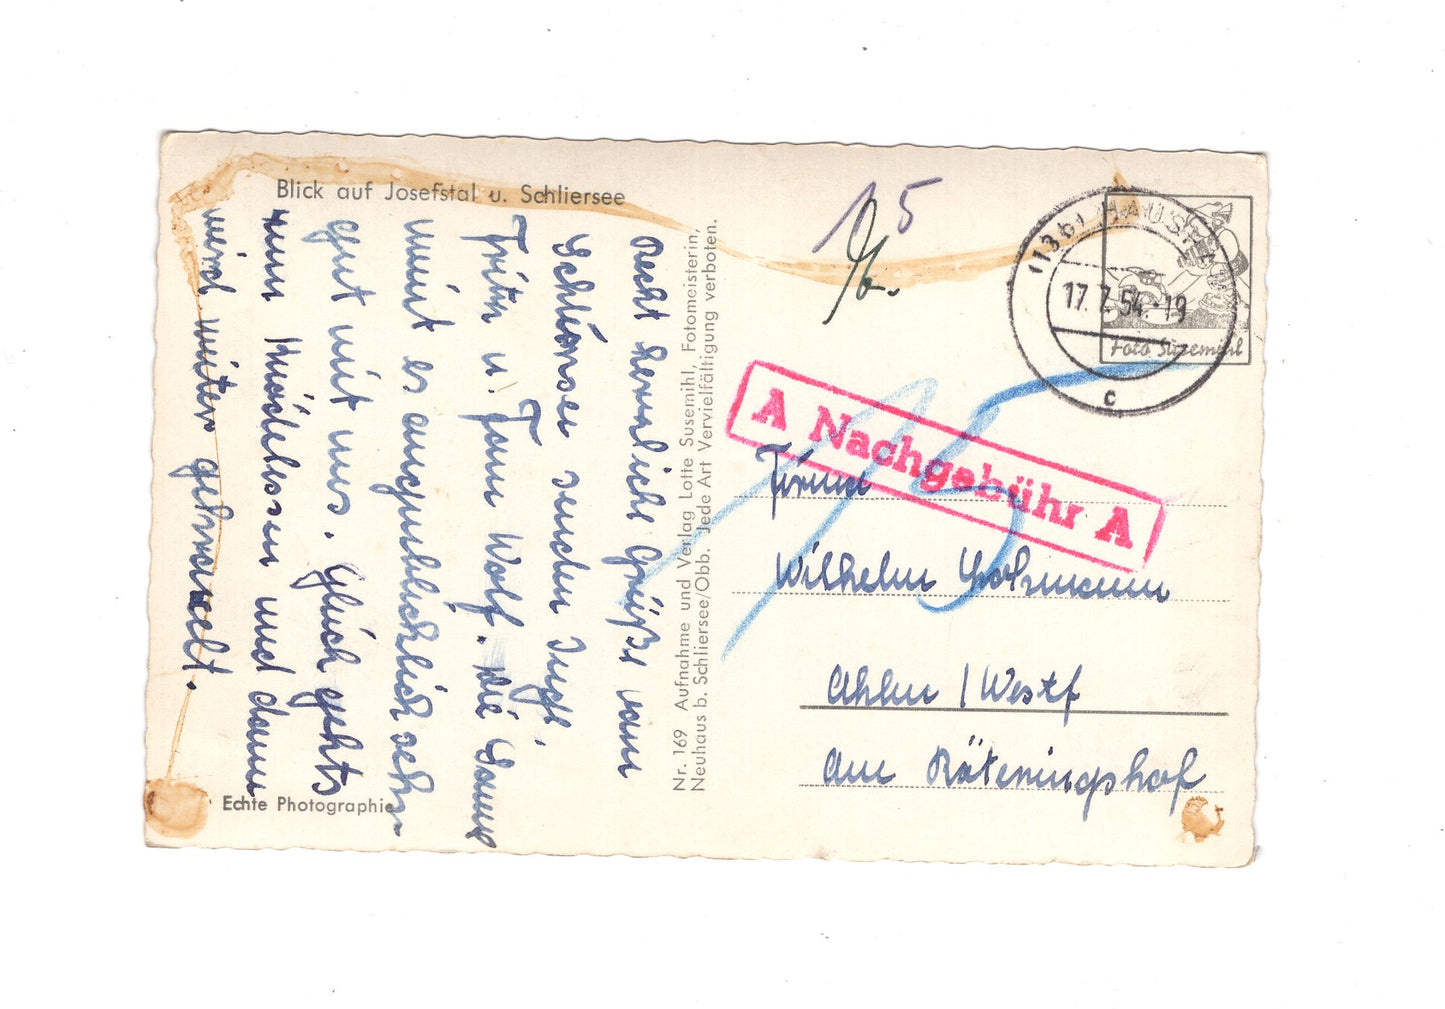 Blick auf Josefstal u. Schliersee
Recht herzliche Grüße vom
Schliersee senden Euch
Fritz u. Frau Wolf. Die Sonne
meint es augenblicklich sehr
gut mit uns. Gleich gehts
zum Mittagessen und dann
wird weiter gefaulenzt.
Echte Photographie
Nr. 169 Aufnahme und Verlag Lotte Susemihl, Fotomeisterin,
Neuhaus b. Schliersee/Obb. Jede Art Vervielfältigung verboten.
15
(13b) HAUSHAM
17.7.54.-19
c
Foto Susemihl
A Nachgebühr A
15
Wilhelm
Ahlen / Westf